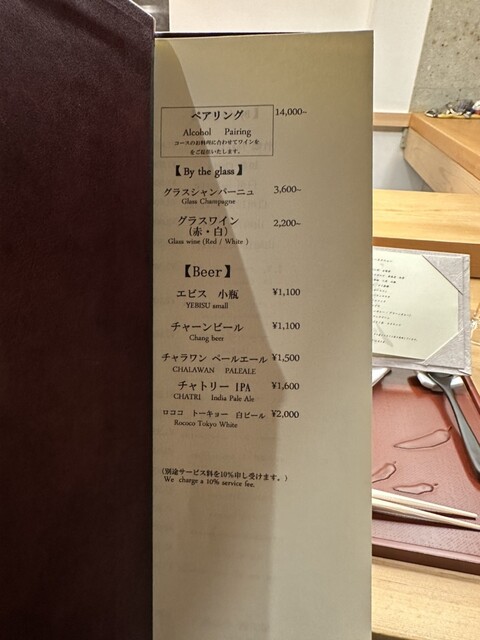 ペアリング 14,000~
Alcohol Pairing
コースのお料理に合わせてワインを
をご提供いたします。
【By the glass】
グラスシャンパーニュ 3,600~
Glass Champagne
グラスワイン 2,200~
(赤・白)
Glass wine (Red / White )
【Beer】
エビス 小瓶 ¥1,100
YEBISU small
チャーンビール ¥1,100
Chang beer
チャラワン ペールエール ¥1,500
CHALAWAN PALEALE
チャトリー IPA ¥1,600
CHATRI India Pale Ale
ロココ トーキョー 白ビール ¥2,000
Rococo Tokyo White
(別途サービス料を10%申し受けます。)
We charge a 10% service fee.